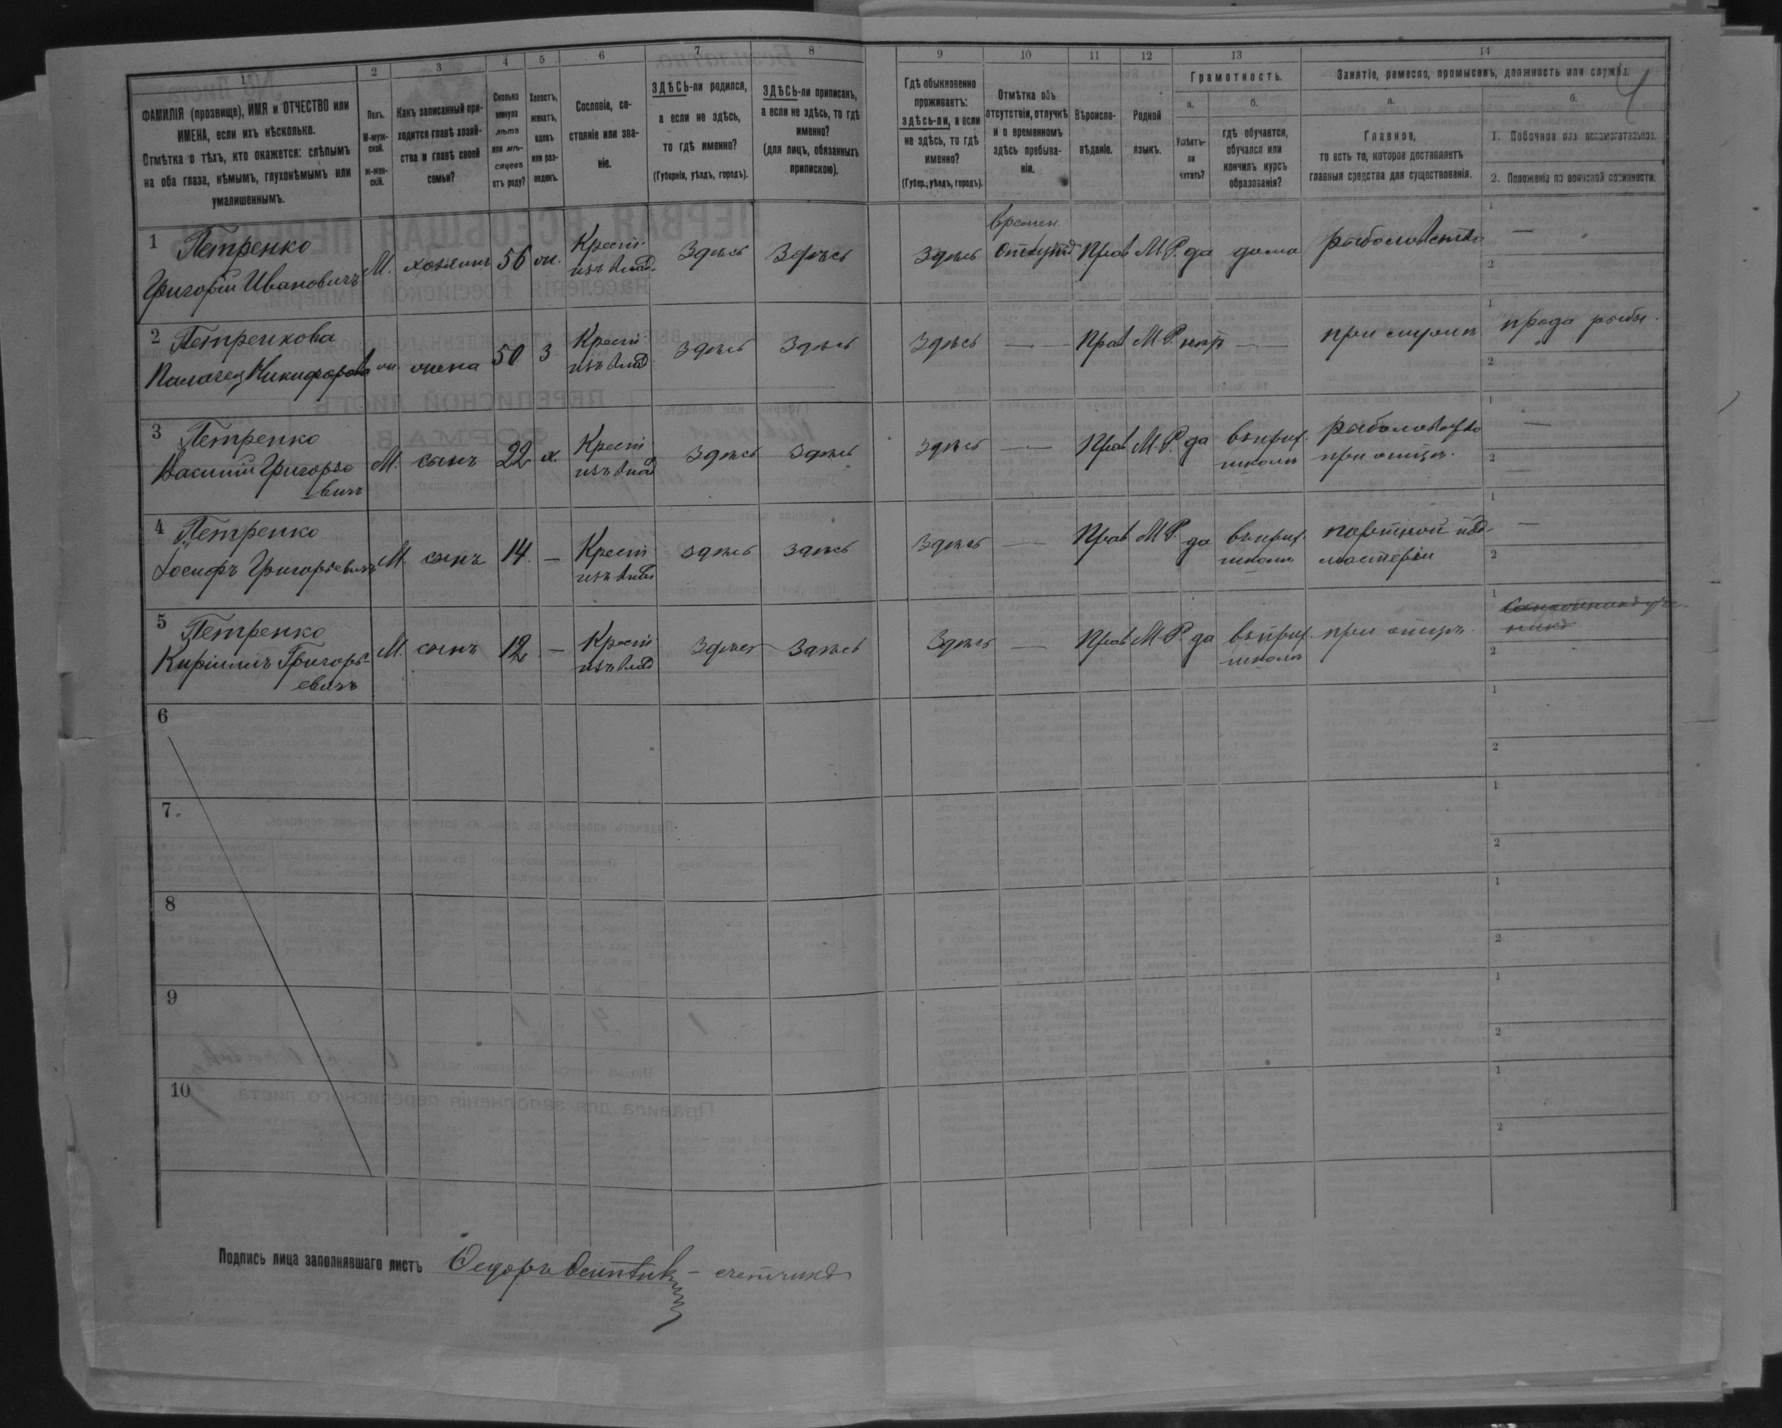 1
2
3
4
5
6
7
8
9
10
11
12
13
14
ФАМИЛІЯ (прозвище), ИМЯ и ОТЧЕСТВО или
ИМЕНА, если ихъ нѣсколько.
Отмѣтка о тѣхъ, кто окажется: слѣпымъ
на оба глаза, нѣмымъ, глухонѣмымъ или
умалишеннымъ.
Полъ.
М-муж-
ской.
Ж-жен-
скій.
Какъ записанный при-
ходится главѣ хозяй-
ства и главѣ своей
семьи?
Сколько
минуло
лѣтъ
или мѣ-
сяцевъ
отъ роду?
Холостъ,
женатъ,
вдовъ
или раз-
веденъ.
Сословіе, со-
стояніе или зва-
ніе.
ЗДѢСЬ-ли родился,
а если не здѣсь,
то гдѣ именно?
(Губернія, уѣздъ, городъ).
ЗДѢСЬ-ли приписанъ,
а если не здѣсь, то гдѣ
именно?
(для лицъ, обязанныхъ
припискою).
Гдѣ обыкновенно
проживаетъ:
здѣсь-ли, а если
не здѣсь, то гдѣ
именно?
(Губер., уѣздъ, городъ).
Отмѣтка объ
отсутствіи, отлучкѣ
и о временномъ
здѣсь пребыва-
ніи.
Вѣроиспо-
вѣданіе.
Родной
языкъ.
Грамотность.
а.
Умѣетъ-
ли
читать?
б.
гдѣ обучается,
обучался или
кончилъ курсъ
образованія?
Занятіе, ремесло, промыселъ, должность или служба.
4
а.
Главное,
то есть то, которое доставляетъ
главныя средства для существованія.
б.
1. Побочное или вспомогательное.
2. Положеніе по воинской повинности.
1 Петренко
Григорій Ивановичъ М. хозяинъ 56 ж. Крест. изъ влад. Здѣсь Здѣсь Здѣсь времен. отлуч. Прав М.Р. да дома рыболовство 1 —
2
2 Петренкова
Никифорова ж. жена 50 З Крест. изъ влад. Здѣсь Здѣсь Здѣсь — Прав М.Р. нѣтъ — при мужѣ 1 прода рыбы.
2
3 Петренко
Василій Григорье
вичъ М. сынъ 22 х. Крест изъ влад Здѣсь Здѣсь Здѣсь — Прав М.Р. да въ прих. школѣ рыболовство при отцѣ. 1 —
2
4 Петренко
Іосифъ Григорьевичъ М. сынъ 14 — Крест изъ влад здѣсь здѣсь Здѣсь — Прав М.Р. да въ прих. школѣ портной под-
мастерій 1 —
2
5 Петренко
Кириллъ Григорь-
евичъ М. сынъ 12 — Крест изъ влад Здѣсь Здѣсь Здѣсь — Прав М.Р. да въ прих. школѣ при отцѣ. 1
2
6
1
2
7.
1
2
8
1
2
9
1
2
10
1
2
Подпись лица заполнявшаго листъ Ѳедоръ — счетчикъ